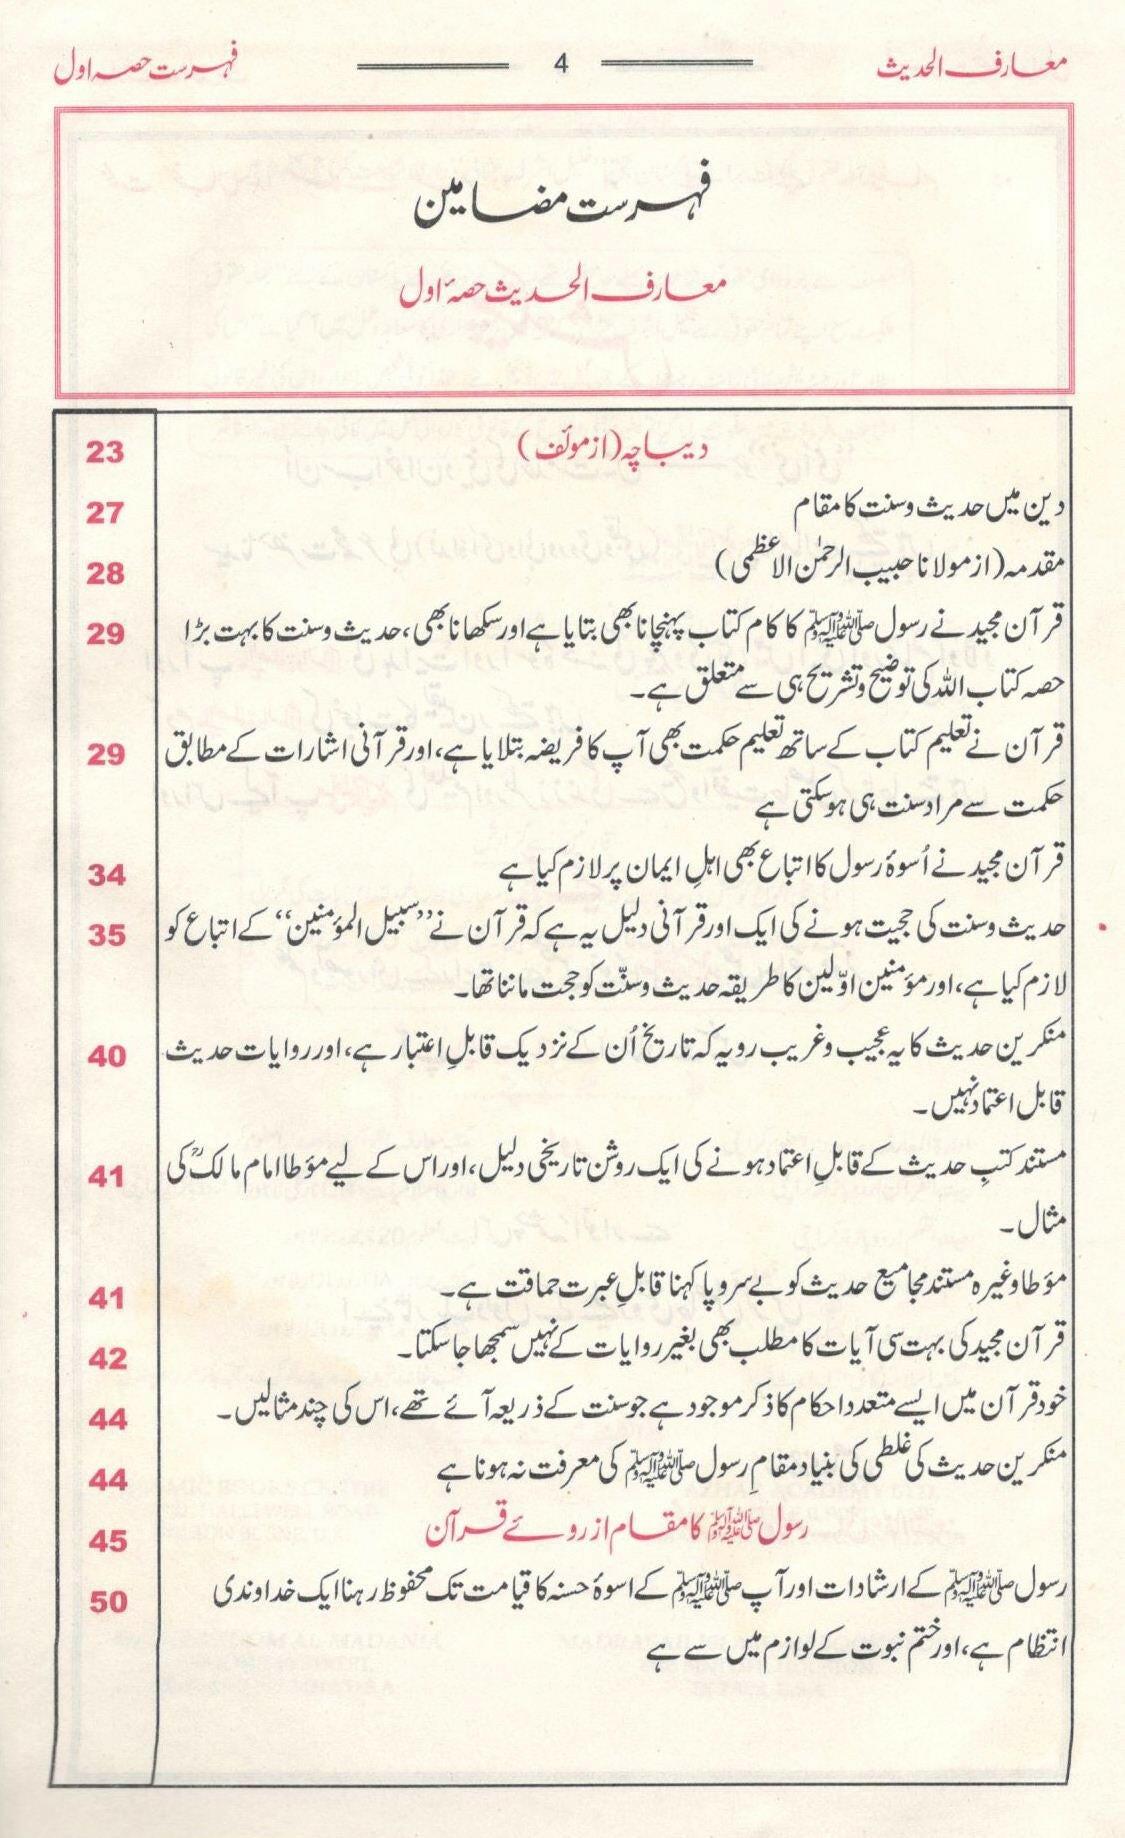 معارف الحدیث 4 فہرست حصہ اول
فہرست مضامین
معارف الحدیث حصۂ اول
دیباچہ (از مؤلف) 23
دین میں حدیث وسنت کا مقام 27
مقدمہ (از مولانا حبیب الرحمٰن الاعظمی) 28
قرآن مجید نے رسول ﷺ کا کام کتاب پہنچانا بھی بتایا ہے اور سکھانا بھی، حدیث وسنت کا بہت بڑا 29
حصہ کتاب اللہ کی توضیح وتشریح ہی سے متعلق ہے۔
قرآن نے تعلیم کتاب کے ساتھ تعلیم حکمت بھی آپ کا فریضہ بتلایا ہے، اور قرآنی اشارات کے مطابق 29
حکمت سے مراد سنت ہی ہوسکتی ہے
قرآن مجید نے اُسوۂ رسول کا اتباع بھی اہلِ ایمان پر لازم کیا ہے 34
حدیث وسنت کی حجیت ہونے کی ایک اور قرآنی دلیل یہ ہے کہ قرآن نے ”سبیل المؤمنین“ کے اتباع کو 35
لازم کیا ہے، اور مؤمنین اوّلین کا طریقہ حدیث وسنّت کو حجت ماننا تھا۔
منکرین حدیث کا یہ عجیب وغریب رویہ کہ تاریخ اُن کے نزدیک قابلِ اعتبار ہے، اور روایات حدیث 40
قابل اعتماد نہیں۔
مستند کتبِ حدیث کے قابلِ اعتماد ہونے کی ایک روشن تاریخی دلیل، اور اس کے لیے مؤطا امام مالکؒ کی 41
مثال۔
مؤطا وغیرہ مستند مجامیع حدیث کو بے سروپا کہنا قابلِ عبرت حماقت ہے۔ 41
قرآن مجید کی بہت سی آیات کا مطلب بھی بغیر روایات کے نہیں سمجھا جاسکتا۔ 42
خود قرآن میں ایسے متعدد احکام کا ذکر موجود ہے جو سنت کے ذریعہ آئے تھے، اس کی چند مثالیں۔ 44
منکرین حدیث کی غلطی کی بنیاد مقامِ رسول ﷺ کی معرفت نہ ہونا ہے 44
رسول ﷺ کا مقام از روئے قرآن 45
رسول ﷺ کے ارشادات اور آپ ﷺ کے اسوۂ حسنہ کا قیامت تک محفوظ رہنا ایک خداوندی 50
انتظام ہے، اور ختم نبوت کے لوازم میں سے ہے